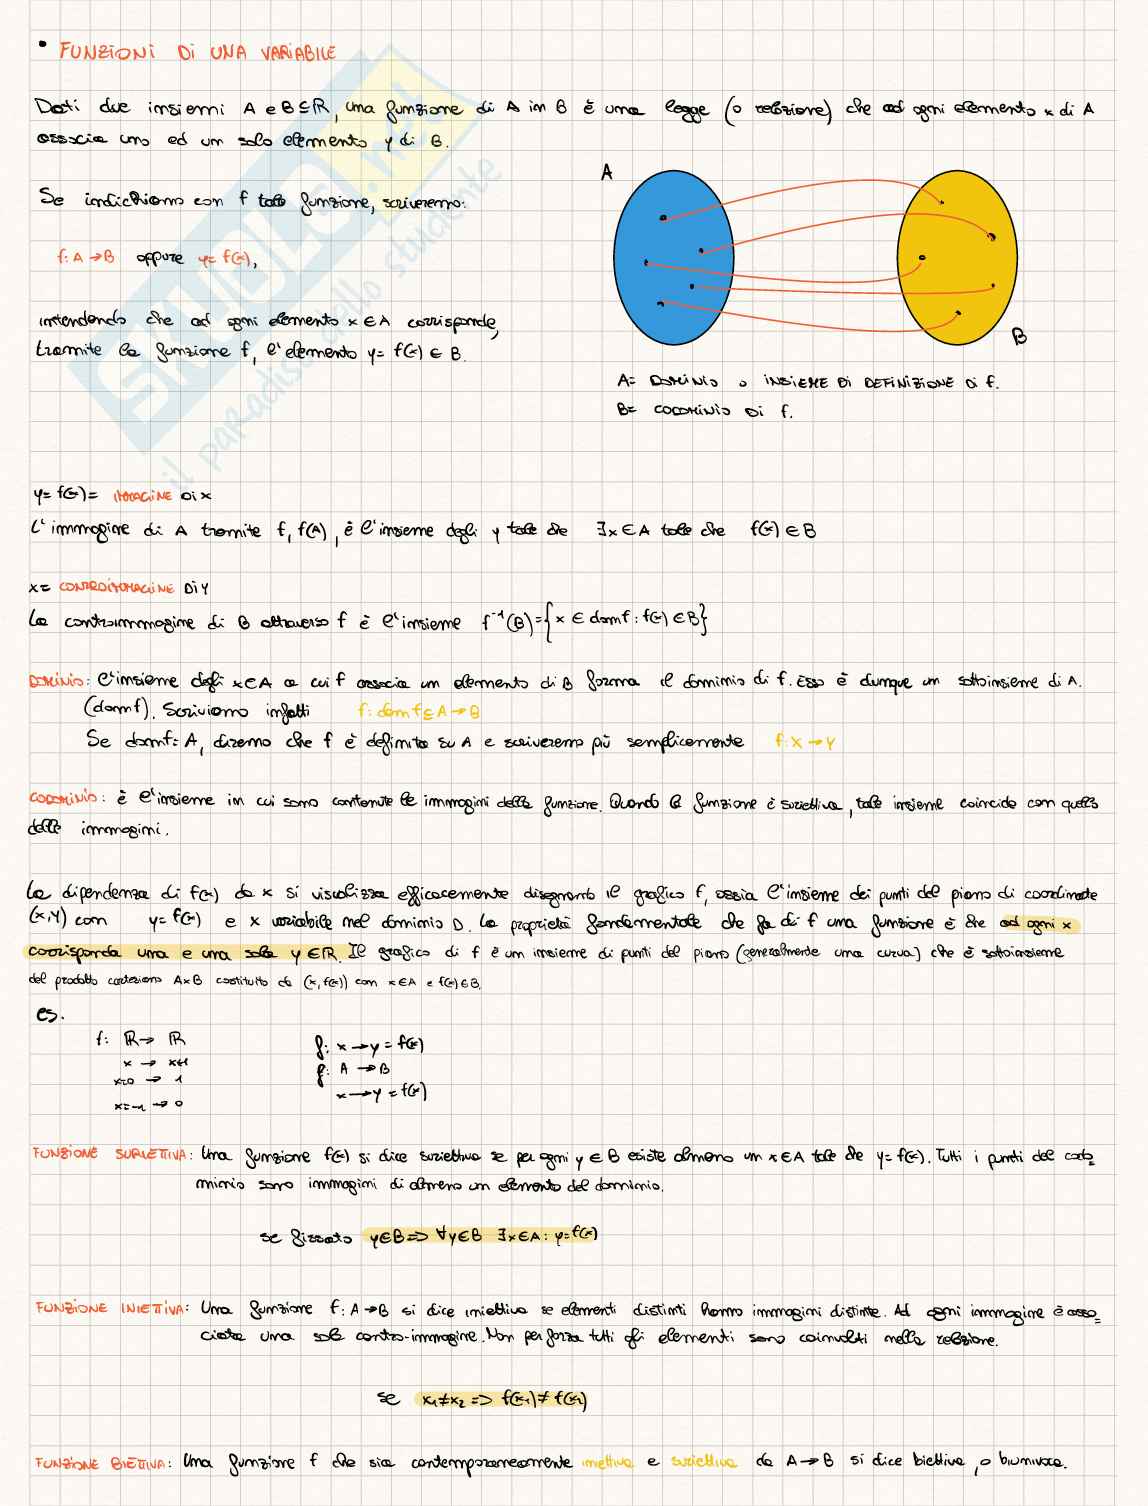 • FUNZIONI DI UNA VARIABILE
Dati due insiemi A e B ⊆ ℝ, una funzione di A in B è una legge (o relazione) che ad ogni elemento x di A
associa uno ed un solo elemento y di B.
Se indichiamo con f tale funzione, scriveremo:
f: A → B oppure y = f(x),
intendendo che ad ogni elemento x ∈ A corrisponde,
tramite la funzione f, l'elemento y = f(x) ∈ B.
A
B
A= DOMINIO o INSIEME DI DEFINIZIONE DI f.
B= CODOMINIO DI f.
SKUOLA.net
il paradiso dello studente
y = f(x) = IMMAGINE DI x
L'immagine di A tramite f, f(A), è l'insieme degli y tale che ∃x ∈ A tale che f(x) ∈ B
x = CONTROIMMAGINE DI Y
La controimmagine di B attraverso f è l'insieme f⁻¹(B) = {x ∈ dom f : f(x) ∈ B}
DOMINIO: l'insieme degli x ∈ A a cui f associa un elemento di B forma il dominio di f. Esso è dunque un sottoinsieme di A.
(domf). Scriviamo infatti f: dom f ⊆ A → B
Se domf = A, diremo che f è definita su A e scriveremo più semplicemente f: X → Y
CODOMINIO: è l'insieme in cui sono contenute le immagini della funzione. Quando la funzione è suriettiva, tale insieme coincide con quello
delle immagini.
La dipendenza di f(x) da x si visualizza efficacemente disegnando il grafico f, ossia l'insieme dei punti del piano di coordinate
(x,y) con y = f(x) e x variabile nel dominio D. La proprietà fondamentale che fa di f una funzione è che ad ogni x
corrisponda una e una sola y ∈ ℝ. Il grafico di f è un insieme di punti del piano (generalmente una curva) che è sottoinsieme
del prodotto cartesiano A×B costituito da (x, f(x)) con x ∈ A e f(x) ∈ B.
es.
f: ℝ → ℝ
x → x+1
x=0 → 1
x=-1 → 0
f: x → y = f(x)
f: A → B
x → y = f(x)
FUNZIONE SURIETTIVA: Una funzione f(x) si dice suriettiva se per ogni y ∈ B esiste almeno un x ∈ A tale che y = f(x). Tutti i punti del codo=
minio sono immagini di almeno un elemento del dominio.
se fissato y ∈ B => ∀y ∈ B ∃x ∈ A : y = f(x)
FUNZIONE INIETTIVA: Una funzione f: A → B si dice iniettiva se elementi distinti hanno immagini distinte. Ad ogni immagine è asso=
ciata una sola contro-immagine. Non per forza tutti gli elementi sono coinvolti nella relazione.
se x₁ ≠ x₂ => f(x₁) ≠ f(x₂)
FUNZIONE BIETTIVA: Una funzione f che sia contemporaneamente iniettiva e suriettiva da A → B si dice biettiva, o biunivoca.